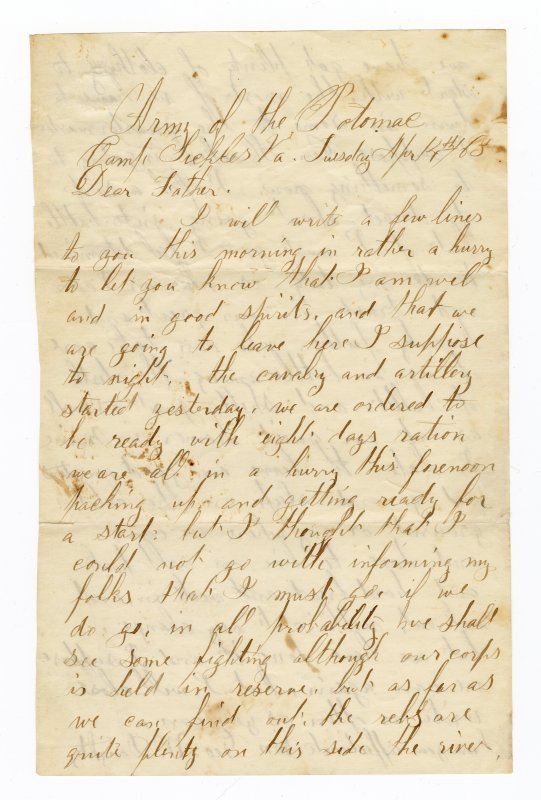 Army of the Potomac
Camp Sickles Va. Tuesday Apr 14th/63
Dear Father.
I will write a few lines
to you this morning in rather a hurry
to let you know that I am well
and in good spirits. and that we
are going to leave here I suppose
to night. the cavalry and artillery
started yesterday. we are ordered to
be ready with eight days ration
we are all in a hurry this forenoon
packing up and getting ready for
a start. but I thought that I
could not go with informing my
folks that I must go. if we
do go. in all probability we shall
see some fighting although our corps
is held in reserve. but as far as
we can find out the rebs are
quite plenty on this side the river.